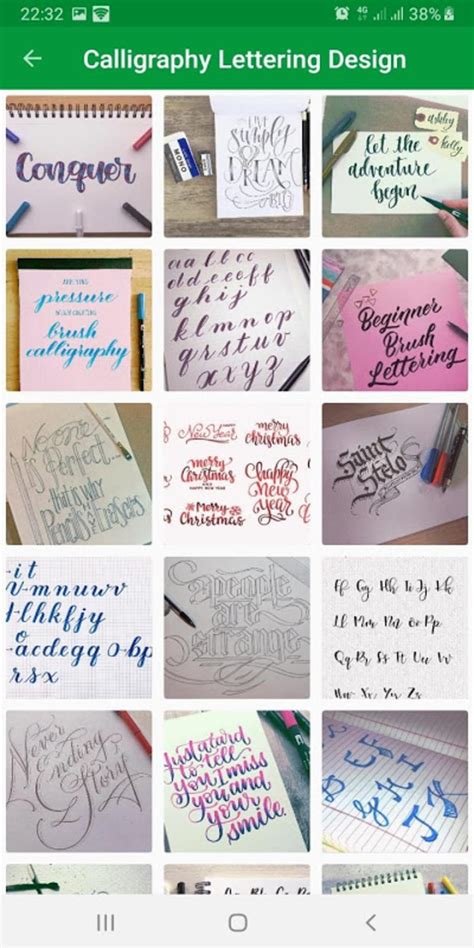 22:32
4G
38%
Calligraphy Lettering Design
Conquer
MONO
LIVE
Simply
DREAM
BIG
ashley
kelly
let the
adventure
begin
pressure
brush
calligraphy
a a b c c
d d e e o f f
g h i j
k l m n o p
q r s t u v
x y z
Beginner
Brush
Lettering
No one
Perfect...
that is why
Pencils
Erasers
New Year
merry
Christmas
merry
Christmas
AND
HAPPY NEW YEAR
happy
new
year
Merry
Christmas
Saint
Stelo
people
are
strange
Ff Gg Hh Ii Jj Kk
Ll Mm Nn Oo Pp
Qq Rr Ss Tt Uu Vv
Ww Xx Yy Zz
Never
Ending
Story
Just a tard
to tell
you I miss
you and
your
smile.
D E F
G H I
J K